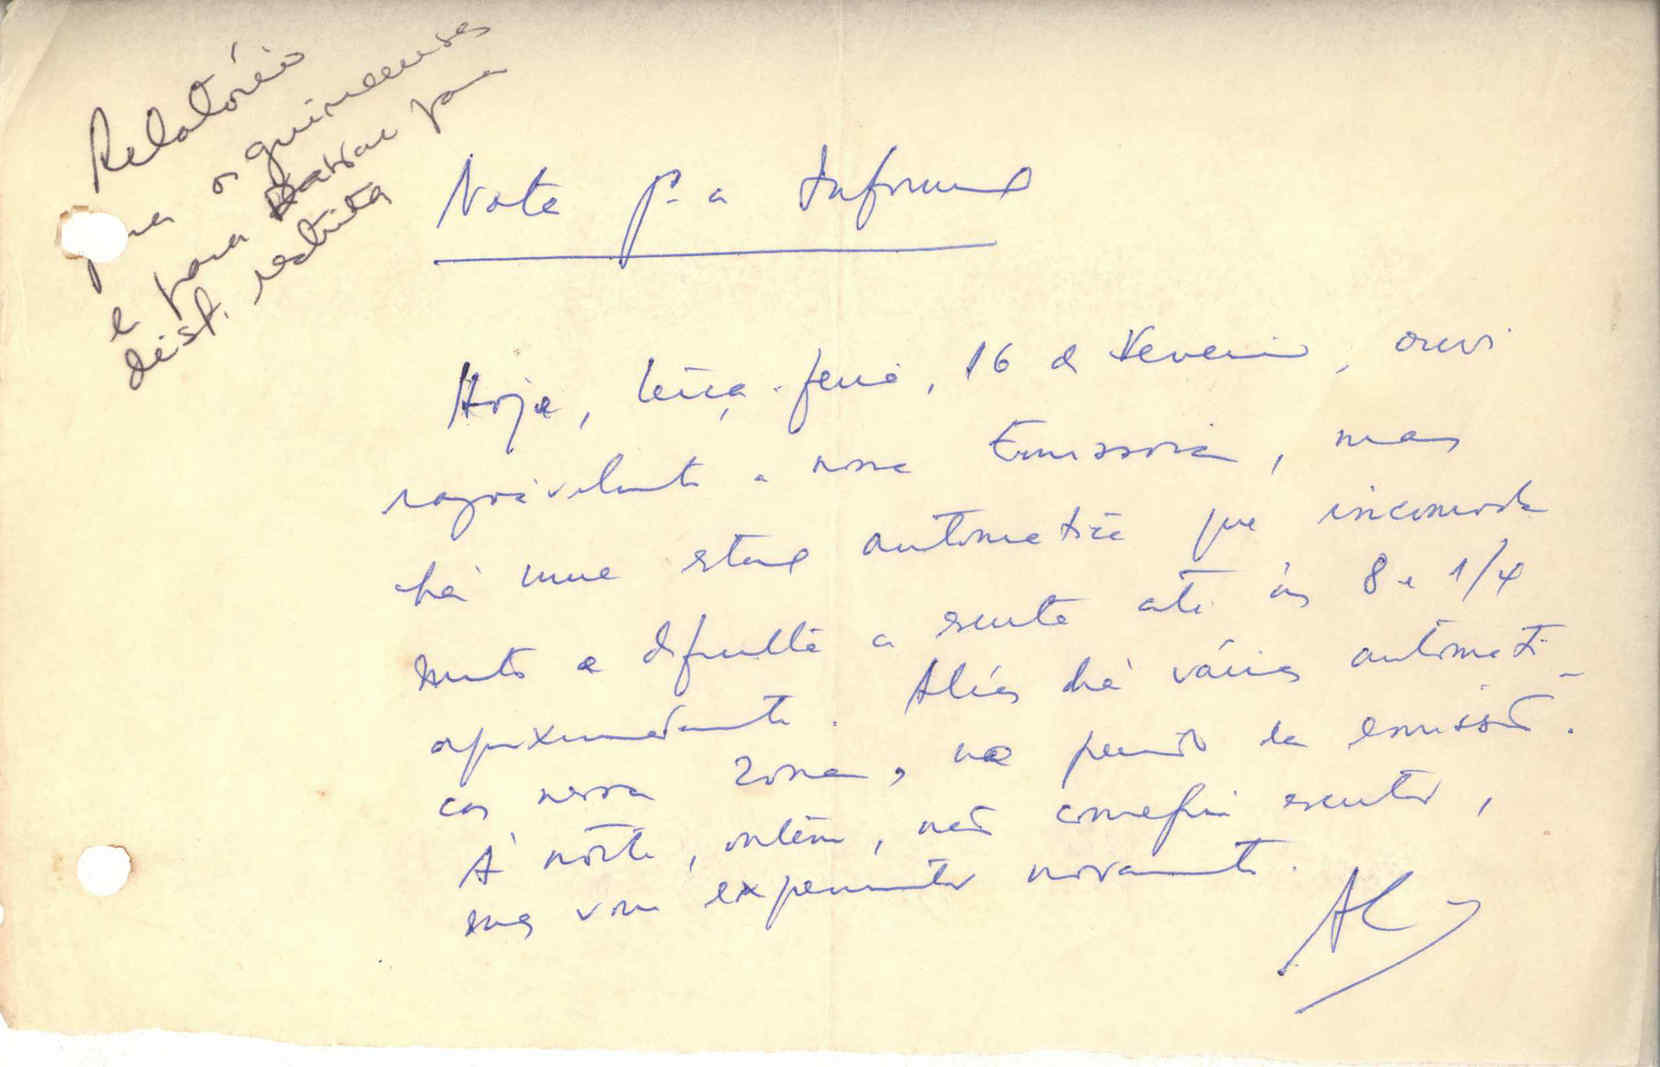 Relatório
para os guineenses
e para Dakar para
dist. restrita
Nota p.a a Informação
Hoje, terça-feira, 16 de Fevereiro, ouvi
razoàvelmente a nossa Emissora, mas
há uma estação automática que incomoda
muito e dificulta a escuta até às 8 e 1/4
aproximadamente. Aliás há várias automáti-
cas nessa zona, no período da emissão.
À noite, ontem, não consegui escutar,
mas vou experimentar novamente.
AC